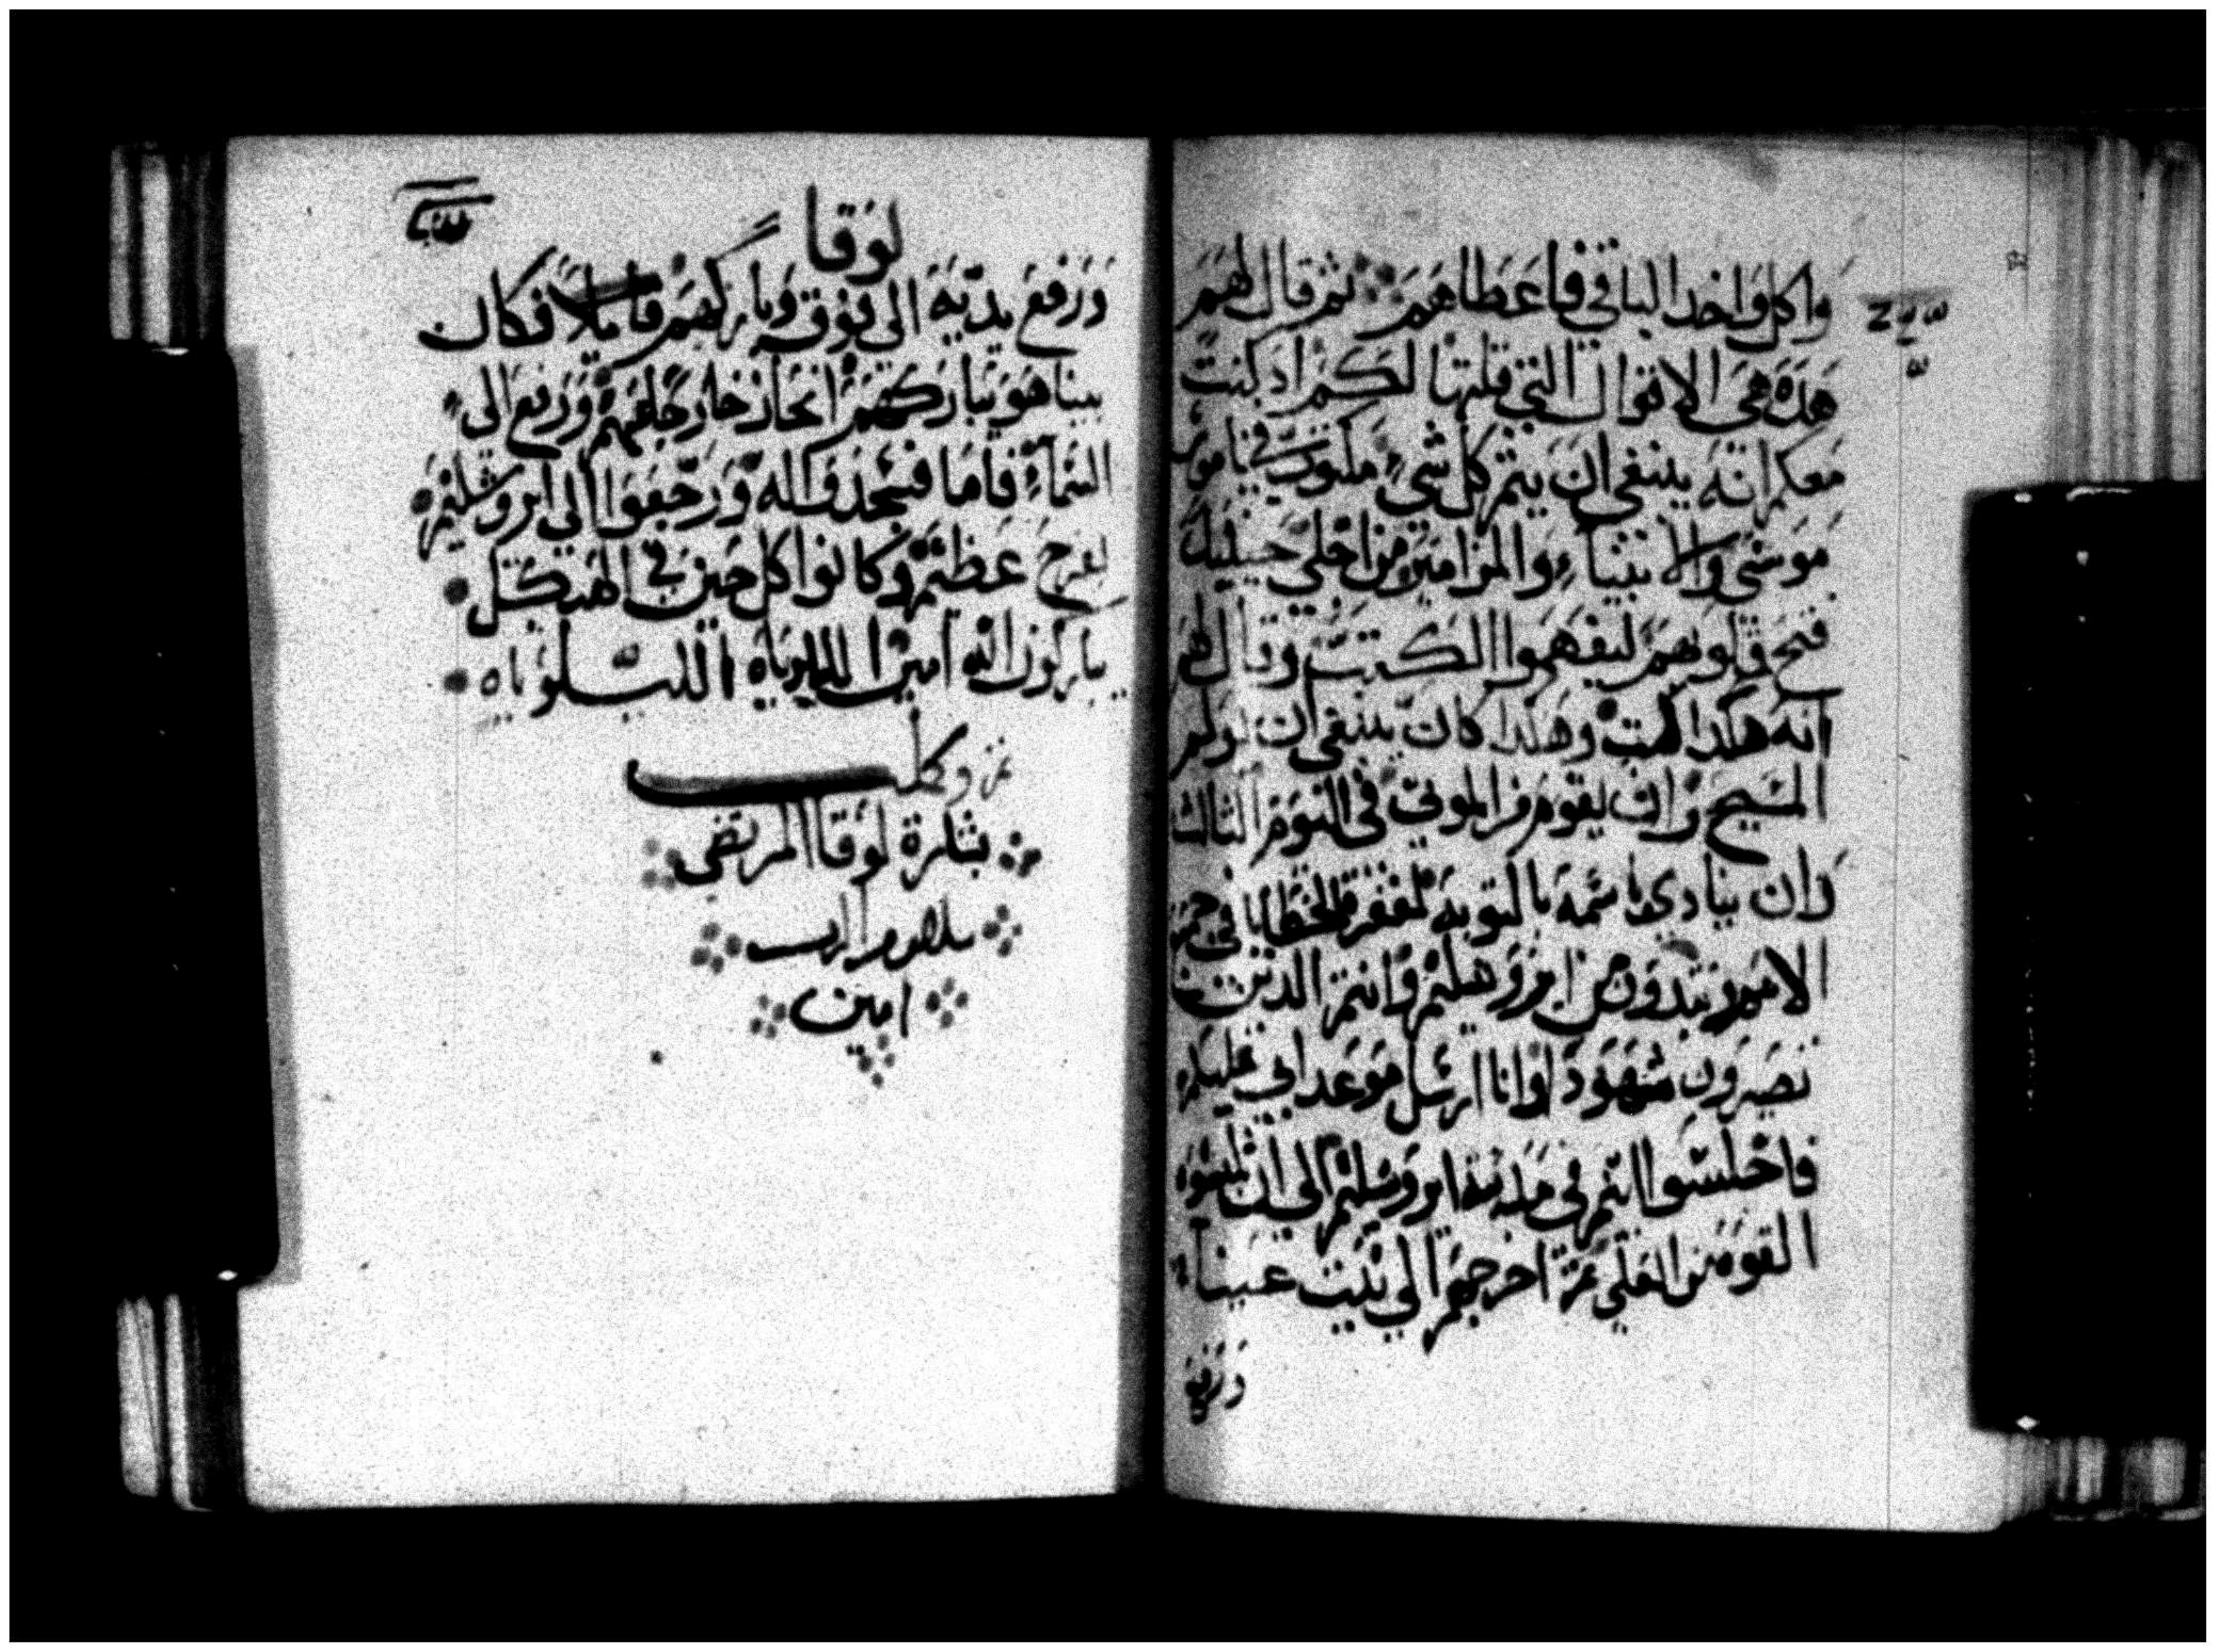 واكل واخد الباقي فاعطاهم ثم قال لهم
هده هي الاقوال التي قلتها لكم اد كنت
معكم انه ينبغي ان يتم كل شيء مكتوب في ناموس
موسي والانبياء والمزامير من اجلي حينيد
فتح قلوبهم ليفهموا الكتب وقال لهم
انه هكدا كتب وهكدا كان ينبغي ان يولم
المسيح وان يقوم من الموتي في اليوم الثالث
وان ينادي باسمه بالتوبه لمغفرة الخطايا في جميع
الامم وتبتدون من ايروشليم وانتم الدين
تصيرون شهودا وانا ارسل موعد ابي عليكم
فاجلسوا انتم في مدينة ايروشليم الي ان تلبسوا
القوه من العلي ثم اخرجهم الي بيت عنيا
ورفع
لوقا
ورفع يديه الي فوق وباركهم قايلا فكان
بينا هو يباركهم انحاز خارجا عنهم ورفع الي
السماء فاما فسجدوا له ورجعوا الي ايروشليم
بفرح عظيم وكانوا كل حين في الهيكل
يباركون الله امين الليلوياه الليلوياه
تم وكمل
بشارة لوقا المرتضي
بسلام الرب
امين